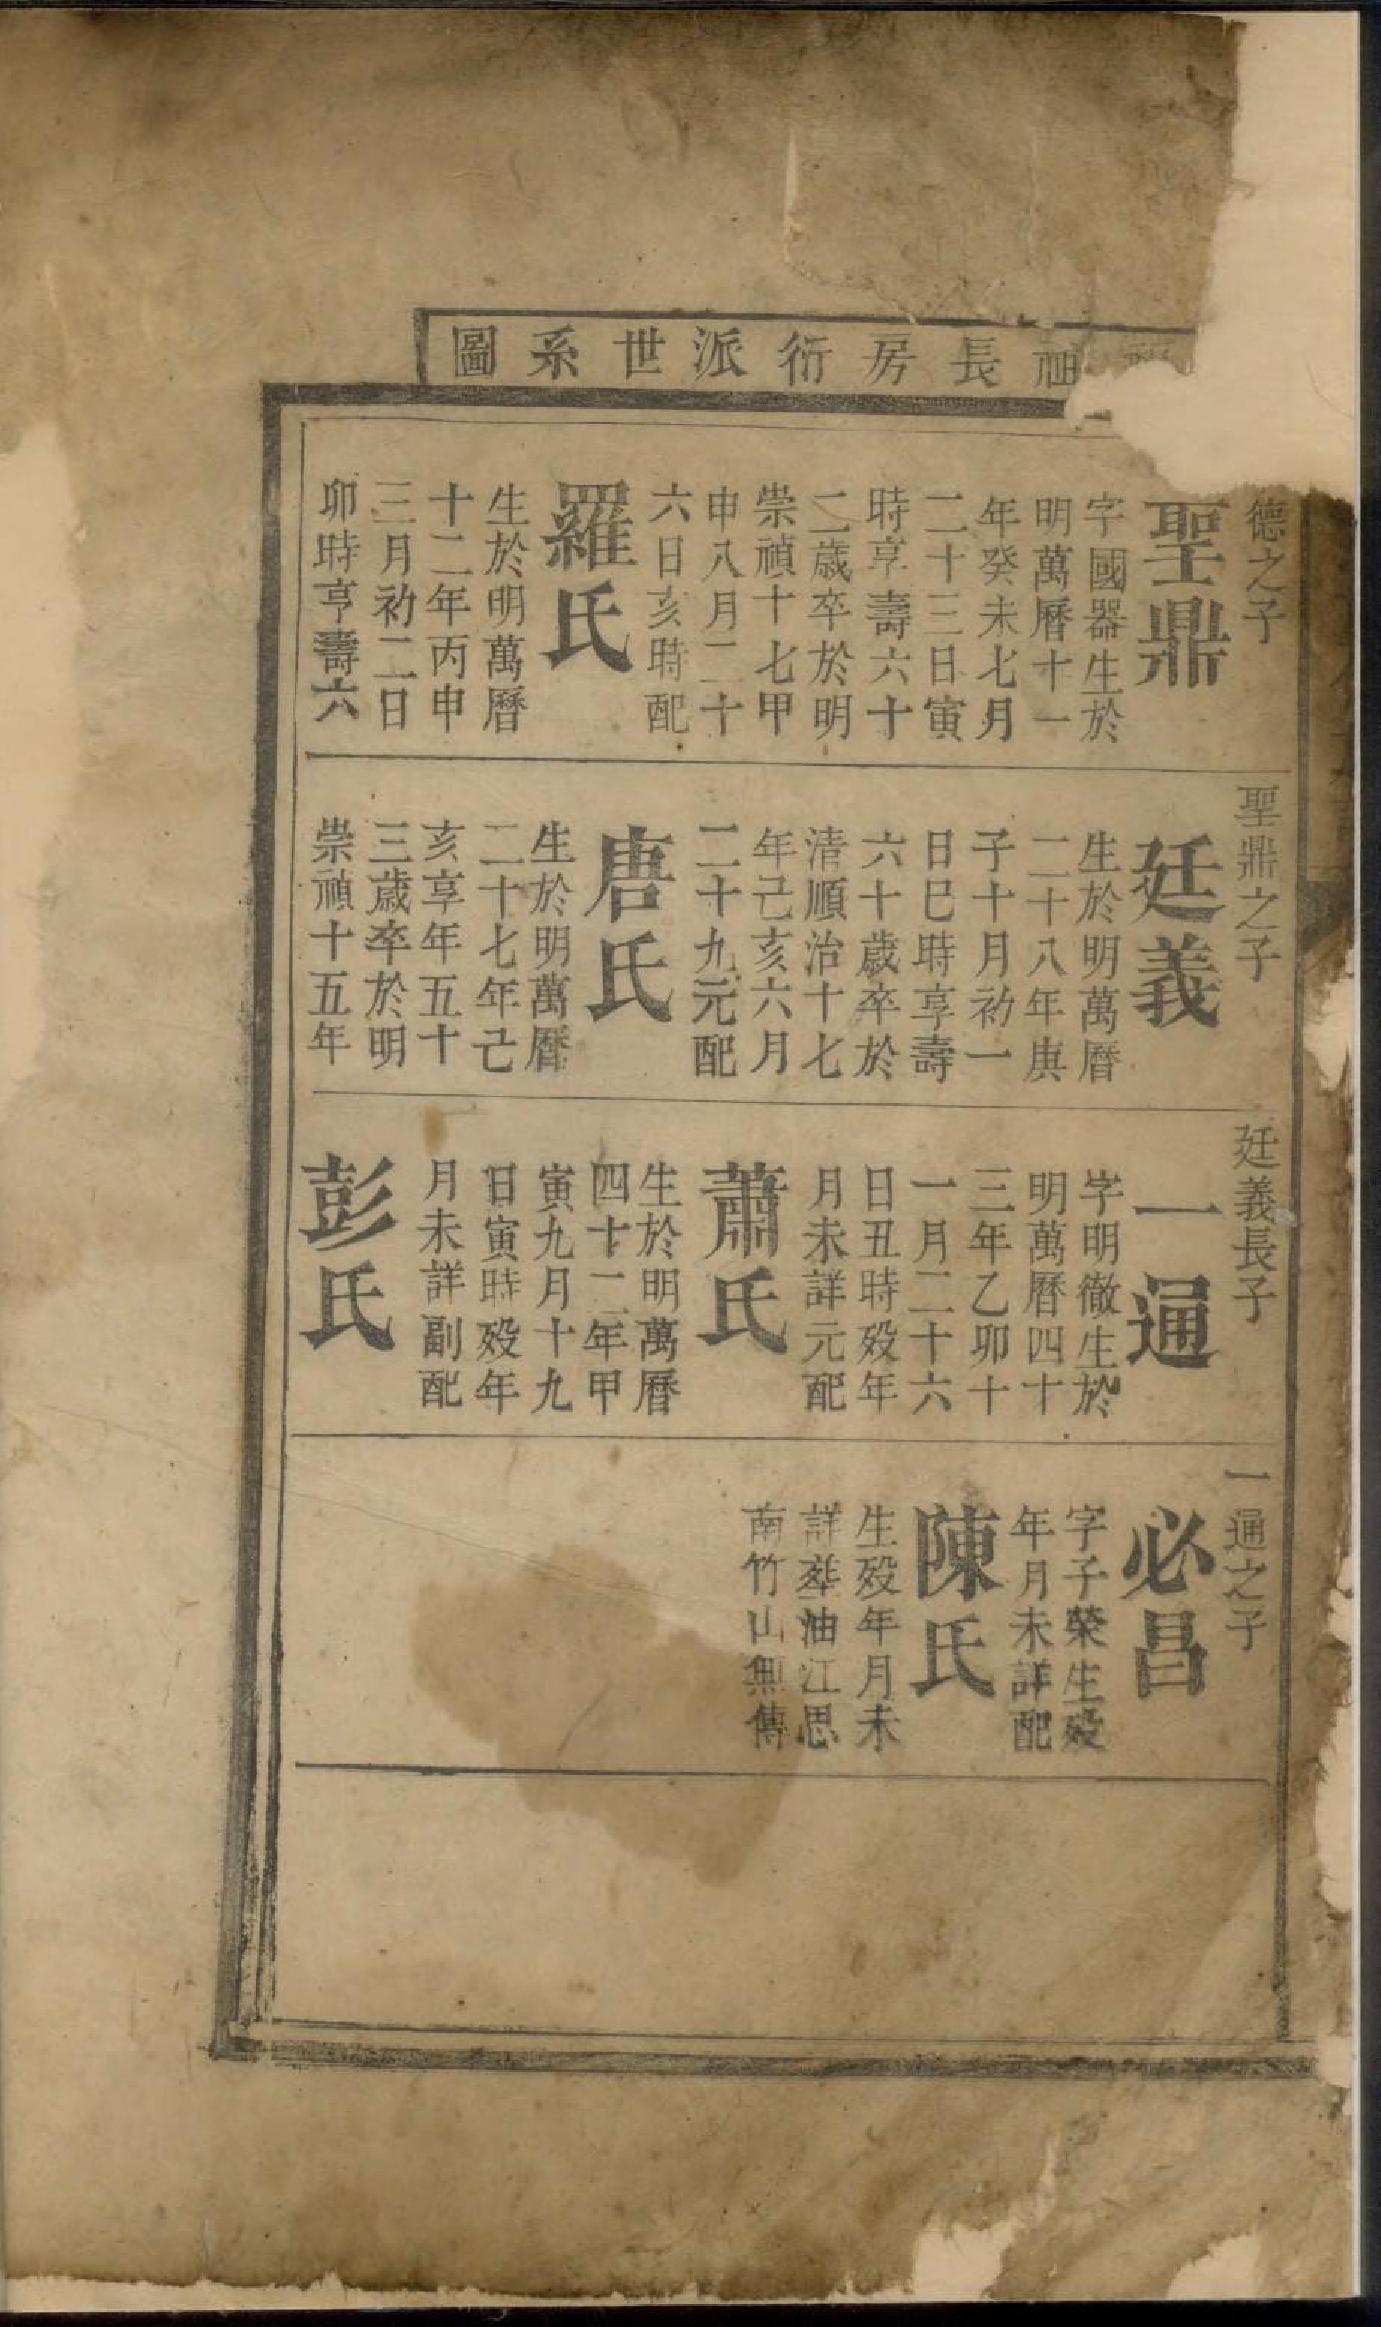 祖長房衍派世系圖
德之子
聖鼎
字國器生於
明萬曆十一
年癸未七月
二十三日寅
時享壽六十
二歲卒於明
崇禎十七甲
申八月二十
六日亥時配
羅氏
生於明萬曆
十二年丙申
三月初二日
卯時享壽六
聖鼎之子
廷義
生於明萬曆
二十八年庚
子十月初一
日巳時享壽
六十歲卒於
清順治十七
年己亥六月
二十九元配
唐氏
生於明萬曆
二十七年己
亥享年五十
三歲卒於明
崇禎十五年
廷義長子
一通
字明徹生於
明萬曆四十
三年乙卯十
一月二十六
日丑時歿年
月未詳元配
蕭氏
生於明萬曆
四十二年甲
寅九月十九
日寅時歿年
月未詳副配
彭氏
一通之子
必昌
字子榮生歿
年月未詳配
陳氏
生歿年月未
詳葬油江思
南竹山無傳